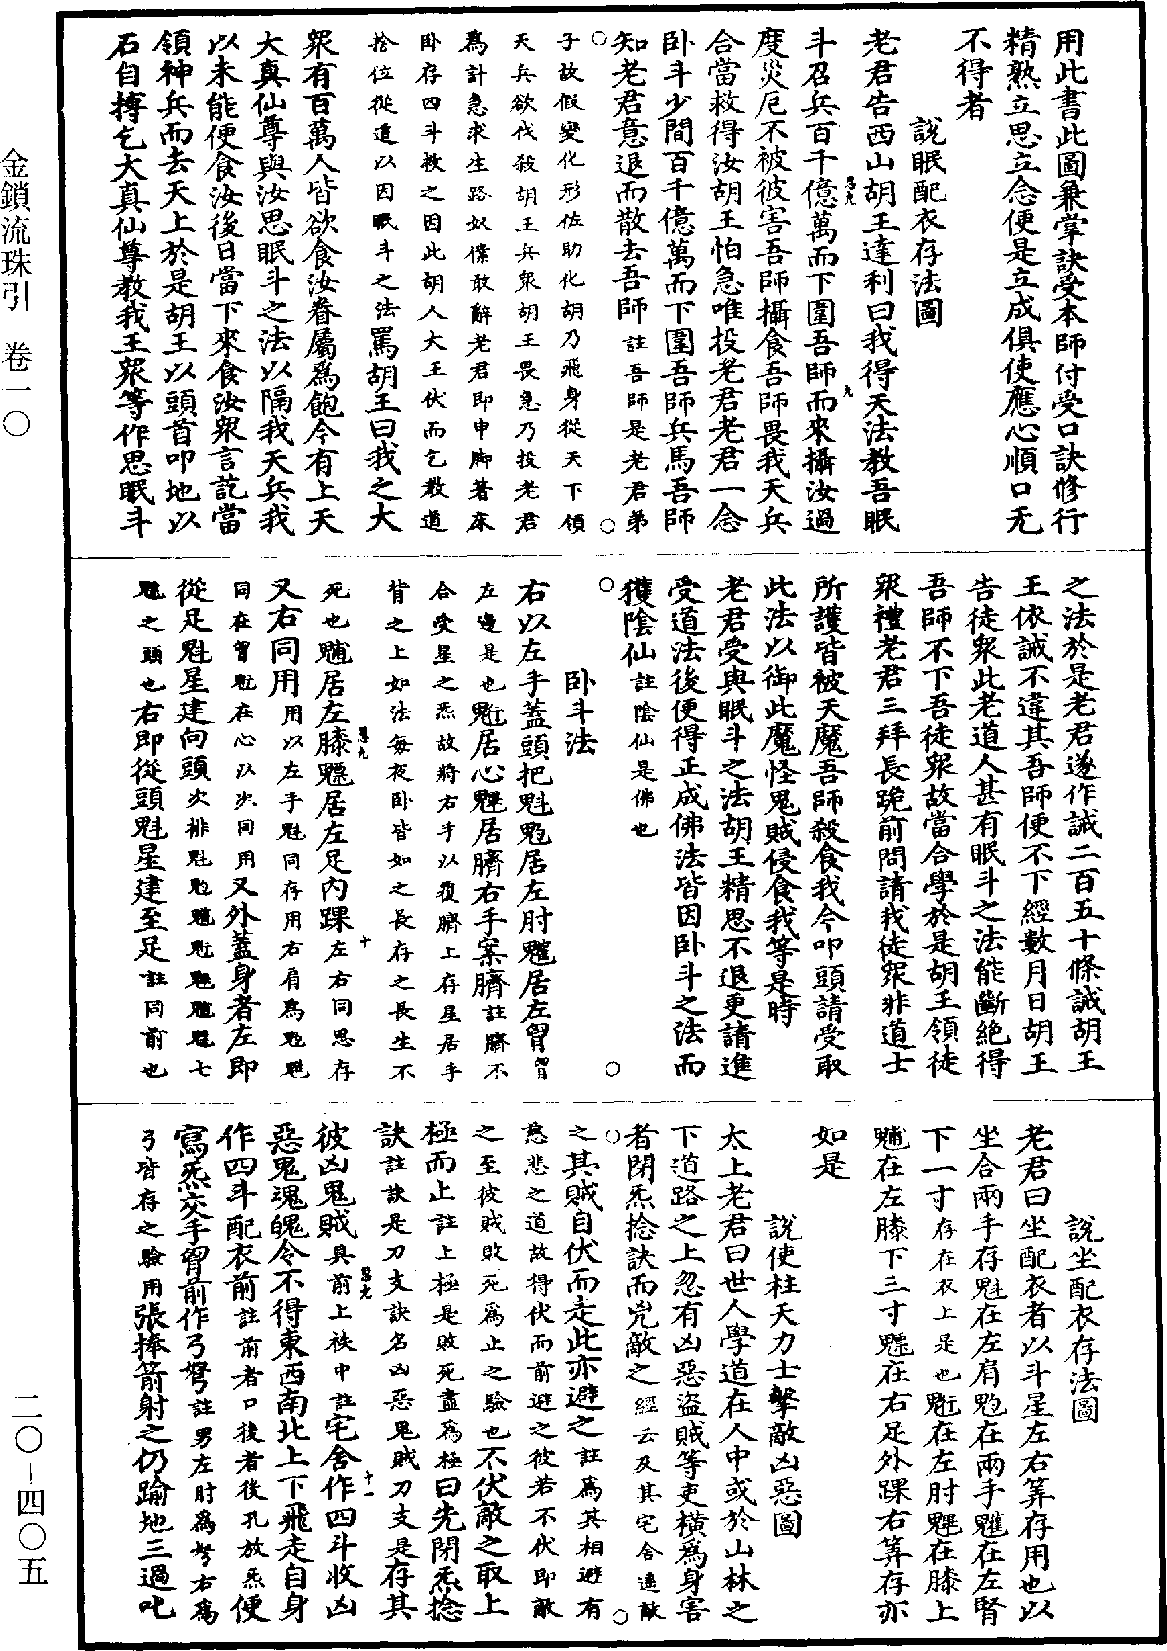 用此書此圖兼掌訣受本師付受口訣修行
精熟立思立念便是立成俱使應心順口无
不得者
說眠配衣存法圖
老君告西山胡王達利曰我得天法教吾眠
斗召兵百千億萬而下圍吾師而來攝汝過
度災厄不被彼害吾師攝食吾師畏我天兵
合當救得汝胡王怕急唯投老君老君一念
卧斗少間百千億萬而下圍吾師兵馬吾師
知老君意退而散去吾師註吾師是老君弟
子故假變化形佐助化胡乃飛身從天下領
天兵欲伐殺胡王兵眾胡王畏急乃投老君
為計急求生路奴僕敢辭老君即申脚著床
卧存四斗救之因此胡人大王伏而乞教道
捨位從道以因眠斗之法罵胡王曰我之大
眾有百萬人皆欲食汝眷屬為飽今有上天
大真仙尊與汝思眠斗之法以隔我天兵我
以未能便食汝後日當下來食汝眾言訖當
領神兵而去天上於是胡王以頭首叩地以
石自搏乞大真仙尊教我王眾等作思眠斗
之法於是老君遂作誡二百五十條誡胡王
王依誡不違其吾師便不下經數月日胡王
告徒眾此老道人甚有眠斗之法能斷絕得
吾師不下吾徒眾故當合學於是胡王領徒
眾禮老君三拜長跪前問請我徒眾非道士
所護皆被天魔吾師殺食我今叩頭請受取
此法以御此魔怪鬼賊侵食我等是時
老君受與眠斗之法胡王精思不退更請進
受道法後便得正成佛法皆因卧斗之法而
獲陰仙註陰仙是佛也
卧斗法
右以左手蓋頭把魁䰢居左肘䰣居左胷胷
左邊是也魓居心魒居臍右手案臍註臍不
合受星之炁故將右手以覆臍上存星居手
背之上如法每夜卧皆如之長存之長生不
死也䰢居左膝魒居左足內踝左右同思存
又右同用用以左手魁同存用右肩為䰢魓
同在胷魓在心以次同用又外蓋身者左即
從足魁星建向頭次排魁䰢䰣魓䰢䰣魒七
魁之頭也右即從頭魁星建至足註同前也
說坐配衣存法圖
老君曰坐配衣者以斗星左右筭存用也以
坐合兩手存魁在左肩䰢在兩手䰣在左腎
下一寸存在衣上是也魓在左肘魒在膝上
䰢在左膝下三寸魒在右足外踝右筭存亦
如是
說使柱天力士擊敵凶惡圖
太上老君曰世人學道在人中或於山林之
下道路之上忽有凶惡盜賊等吏橫為身害
者閉炁捻訣而兇敵之經云及其宅舍遠敵
之其賊自伏而走此亦避之註為其相避有
慈悲之道故得伏而前避之彼若不伏即敵
之至彼賊敗死為止之驗也不伏敵之取上
極而止註上極是敗死盡為極曰先閉炁捻
訣註訣是刀支訣名凶惡鬼賊刀支是存其
彼凶鬼賊具前上袟中註宅舍作四斗收凶
惡鬼魂魄令不得東西南北上下飛走自身
作四斗配衣前註前者口後者後孔放炁便
寫炁交手胷前作弓弩註男左肘為弩右為
弓皆存之驗用張捧箭射之仍踰地三過叱
金鎖流珠引　卷一〇
二〇—四〇五